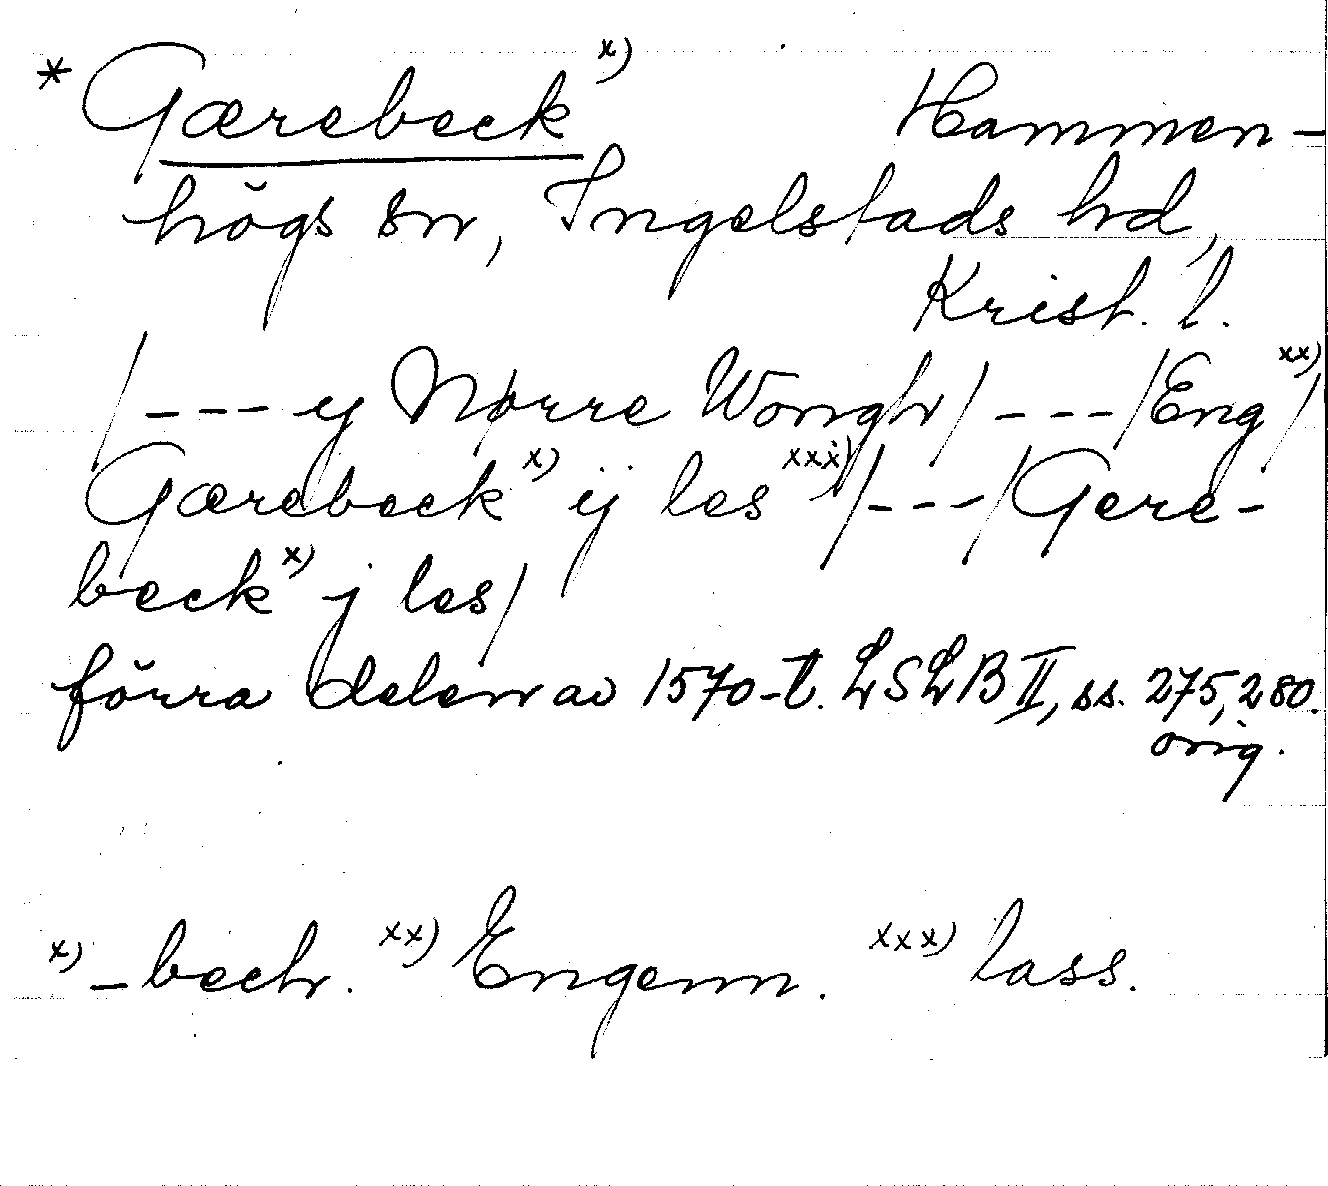 * Gærebeck x) Hammen-
högs sn, Ingelstads hd,
Krist. l.
/--- y Nørre Wongh/ ---/Eng xx)/
Gærebeck x) ij les xxx)/---/Gere-
beck x) j les/
förra delen av 1570-t. LSLB II, ss. 275, 280.
orig.
x) -bech. xx) Engenn. xxx) lass.